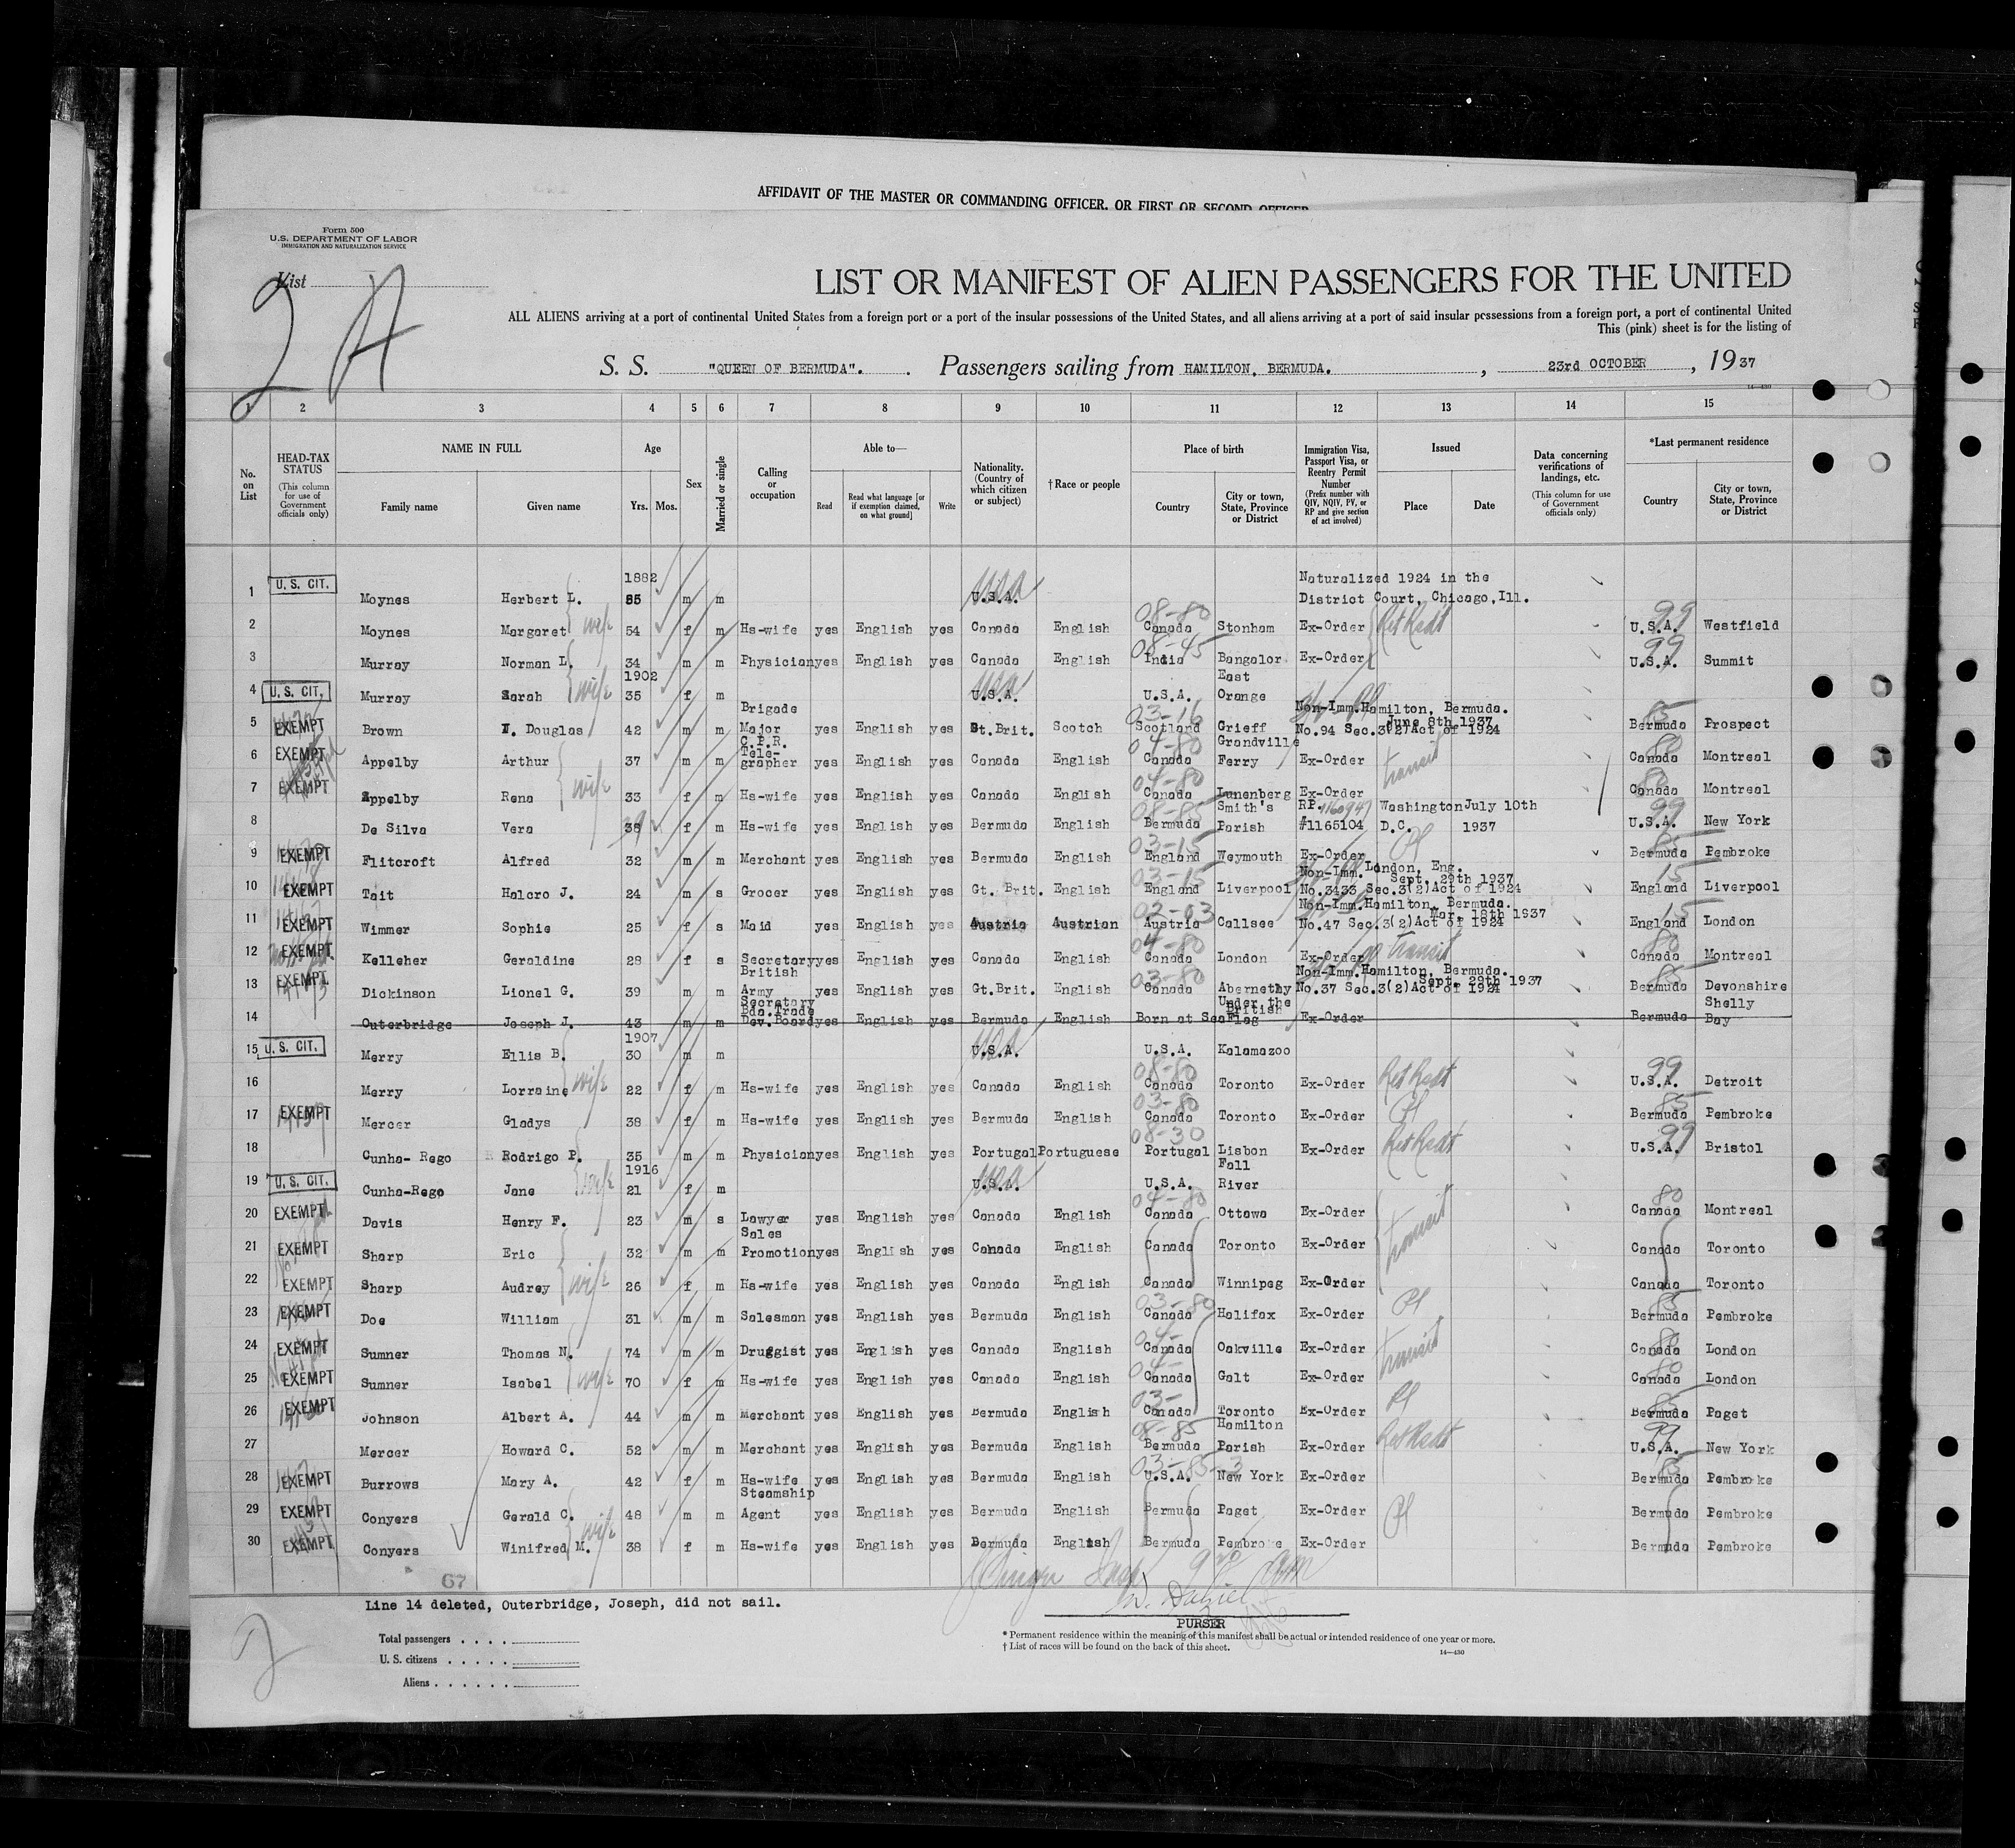 AFFIDAVIT OF THE MASTER OR COMMANDING OFFICER, OR FIRST OR SECOND OFFICER
Form 500
U.S. DEPARTMENT OF LABOR
IMMIGRATION AND NATURALIZATION SERVICE
List 2 A
LIST OR MANIFEST OF ALIEN PASSENGERS FOR THE UNITED
ALL ALIENS arriving at a port of continental United States from a foreign port or a port of the insular possessions of the United States, and all aliens arriving at a port of said insular possessions from a foreign port, a port of continental United
This (pink) sheet is for the listing of
S. S. "QUEEN OF BERMUDA". Passengers sailing from HAMILTON, BERMUDA. , 23rd OCTOBER , 1937
14-430
1 2 3 4 5 6 7 8 9 10 11 12 13 14 15
No. on List
HEAD-TAX STATUS (This column for use of Government officials only)
NAME IN FULL Family name Given name
Age Yrs. Mos.
Sex
Married or single
Calling or occupation
Able to— Read Read what language [or if exemption claimed, on what ground] Write
Nationality. (Country of which citizen or subject)
†Race or people
Place of birth Country City or town, State, Province or District
Immigration Visa, Passport Visa, or Reentry Permit Number (Prefix number with QIV, NQIV, PV, or RP and give section of act involved)
Issued Place Date
Data concerning verifications of landings, etc. (This column for use of Government officials only)
*Last permanent residence Country City or town, State, Province or District
1 U. S. CIT. Moynes Herbert L. 1882 55 m m U.S.A. Naturalized 1924 in the District Court, Chicago, Ill.
2 Moynes Margaret wife 54 f m Hs-wife yes English yes Canada English 08-80 Canada Stonham Ex-Order Ret Redt 99 U.S.A. Westfield
3 Murray Norman L. 34 m m Physician yes English yes Canada English 08-45 India Bangalor Ex-Order 99 U.S.A. Summit
4 U. S. CIT. Murray Sarah wife 1902 35 f m U.S.A. U.S.A. East Orange
5 EXEMPT Brown T. Douglas 42 m m Brigade Major yes English yes Gt.Brit. Scotch 03-16 Scotland Grieff Non-Imm. Hamilton, Bermuda. No.94 Sec.3(2)Act of 1924 June 8th 1937 85 Bermuda Prospect
6 EXEMPT Appelby Arthur 37 m m C.P.R. Tele-grapher yes English yes Canada English 04-80 Canada Grandville Ferry Ex-Order transit 80 Canada Montreal
7 EXEMPT Appelby Rena wife 33 f m Hs-wife yes English yes Canada English 04-80 Canada Lunenberg Ex-Order 80 Canada Montreal
8 De Silva Vera 38 39 f m Hs-wife yes English yes Bermuda English 08-85 Bermuda Smith's Parish RP. 1160947 #1165104 Washington D.C. July 10th 1937 99 U.S.A. New York
9 EXEMPT Flitcroft Alfred 32 m m Merchant yes English yes Bermuda English 03-15 England Weymouth Ex-Order Pl 85 Bermuda Pembroke
10 EXEMPT Tait Halcro J. 24 m s Grocer yes English yes Gt. Brit. English 03-15 England Liverpool Non-Imm. London, Eng. No.3433 Sec.3(2)Act of 1924 Sept. 29th 1937 15 England Liverpool
11 EXEMPT Wimmer Sophie 25 f s Maid yes English yes Austria Austrian 02-03 Austria Callsee Non-Imm. Hamilton, Bermuda. No.47 Sec.3(2)Act of 1924 Mar. 18th 1937 15 England London
12 EXEMPT Kelleher Geraldine 28 f s Secretary yes English yes Canada English 04-80 Canada London Ex-Order transit 80 Canada Montreal
13 EXEMPT Dickinson Lionel G. 39 m m British Army yes English yes Gt.Brit. English 03-80 Canada Abernethy Non-Imm. Hamilton, Bermuda. No.37 Sec.3(2)Act of 1924 Sept. 29th 1937 85 Bermuda Devonshire
14 Outerbridge Joseph J. 43 m m Secretary Bda.Trade Dev.Board yes English yes Bermuda English Born at Sea Under the British Flag Ex-Order Bermuda Shelly Bay
15 U. S. CIT. Merry Ellis B. 1907 30 m m U.S.A. U.S.A. Kalamazoo
16 Merry Lorraine wife 22 f m Hs-wife yes English yes Canada English 08-80 Canada Toronto Ex-Order Ret Redt 99 U.S.A. Detroit
17 EXEMPT Mercer Gladys 38 f m Hs-wife yes English yes Bermuda English 03-80 Canada Toronto Ex-Order Pl 85 Bermuda Pembroke
18 Cunha- Rego Rodrigo P. 35 m m Physician yes English yes Portugal Portuguese 08-30 Portugal Lisbon Ex-Order Ret Redt 99 U.S.A. Bristol
19 U. S. CIT. Cunha-Rego Jane wife 1916 21 f m U.S.A. U.S.A. Fall River
20 EXEMPT Davis Henry F. 23 m s Lawyer yes English yes Canada English 04-80 Canada Ottawa Ex-Order transit 80 Canada Montreal
21 EXEMPT Sharp Eric 32 m m Sales Promotion yes English yes Canada English Canada Toronto Ex-Order Canada Toronto
22 EXEMPT Sharp Audrey wife 26 f m Hs-wife yes English yes Canada English Canada Winnipeg Ex-Order Canada Toronto
23 EXEMPT Doe William 31 m m Salesman yes English yes Bermuda English 03-80 Canada Halifax Ex-Order Pl 85 Bermuda Pembroke
24 EXEMPT Sumner Thomas N. 74 m m Druggist yes English yes Canada English 04- Canada Oakville Ex-Order transit 80 Canada London
25 EXEMPT Sumner Isabel wife 70 f m Hs-wife yes English yes Canada English 04- Canada Galt Ex-Order 80 Canada London
26 EXEMPT Johnson Albert A. 44 m m Merchant yes English yes Bermuda English 03- Canada Toronto Ex-Order Pl 85 Bermuda Paget
27 Mercer Howard C. 52 m m Merchant yes English yes Bermuda English 08-85 Bermuda Hamilton Parish Ex-Order Ret Redt 99 U.S.A. New York
28 EXEMPT Burrows Mary A. 42 f m Hs-wife yes English yes Bermuda English 03-85-3 U.S.A. New York Ex-Order 85 Bermuda Pembroke
29 EXEMPT Conyers Gerald C. 48 m m Steamship Agent yes English yes Bermuda English Bermuda Paget Ex-Order Pl Bermuda Pembroke
30 EXEMPT Conyers Winifred M. wife 38 f m Hs-wife yes English yes Bermuda English Bermuda Pembroke Ex-Order Bermuda Pembroke
67
Line 14 deleted, Outerbridge, Joseph, did not sail.
W. Daniel
PURSER
Total passengers . . . . .
U. S. citizens . . . . .
Aliens . . . . . .
* Permanent residence within the meaning of this manifest shall be actual or intended residence of one year or more.
† List of races will be found on the back of this sheet.
14-430
2